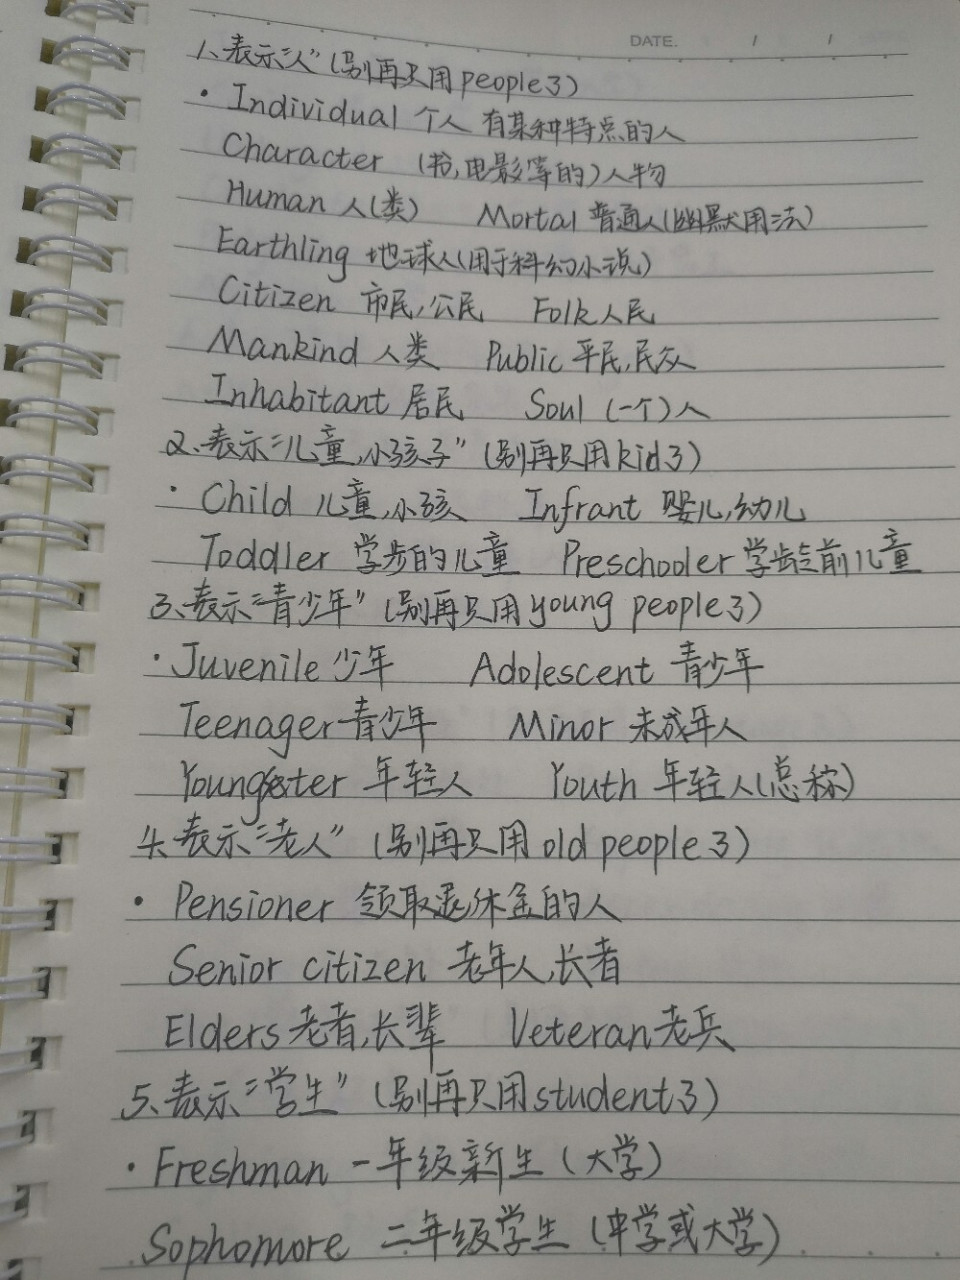 DATE. / /
1、表示“人”(别再只用people了)
· Individual 个人 有某种特点的人
Character (书,电影等的)人物
Human 人(类) Mortal 普通人(幽默用法)
Earthling 地球人(用于科幻小说)
Citizen 市民,公民 Folk人民
Mankind 人类 Public 平民,民众
Inhabitant 居民 Soul (一个)人
2、表示“儿童,小孩子”(别再只用kid了)
· Child 儿童,小孩 Infrant 婴儿,幼儿
Toddler 学步的儿童 Preschooler学龄前儿童
3、表示“青少年”(别再只用young people了)
· Juvenile少年 Adolescent 青少年
Teenager青少年 Minor 未成年人
Youngster 年轻人 Youth 年轻人(总称)
4、表示“老人”(别再只用old people了)
· Pensioner 领取退休金的人
Senior citizen 老年人,长者
Elders老者,长辈 Veteran老兵
5、表示“学生”(别再只用student了)
· Freshman 一年级新生(大学)
Sophomore 二年级学生(中学或大学)